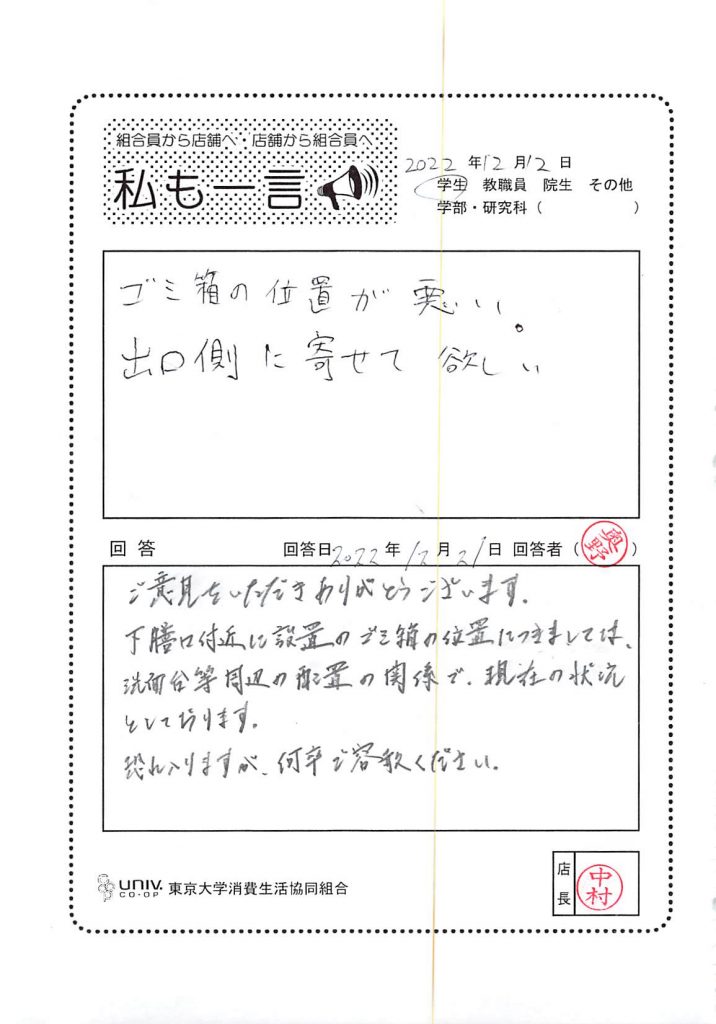 組合員から店舗へ・店舗から組合員へ
私も一言
2022年12月12日
学生 教職員 院生 その他
学部・研究科（ ）
ゴミ箱の位置が悪い。
出口側に寄せて欲しい
回答 回答日2022年12月21日 回答者（奥野）
ご意見をいただきありがとうございます。
下膳口付近に設置のゴミ箱の位置につきましては、
洗面台等周辺の配置の関係で、現在の状況
としております。
恐れ入りますが、何卒ご容赦ください。
UNIV. CO-OP 東京大学消費生活協同組合
店長 中村